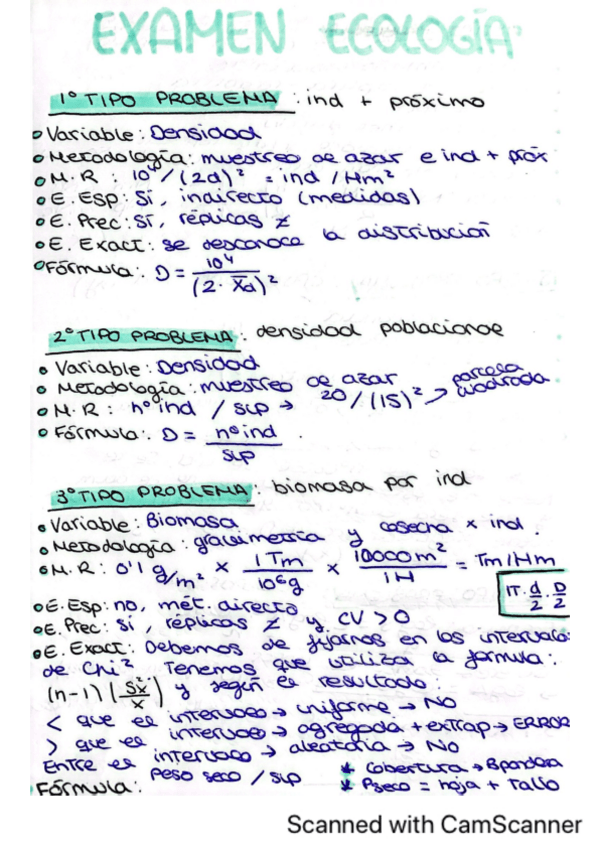 EXAMEN ECOLOGÍA
1º TIPO PROBLEMA : ind + próximo
Variable: Densidad
Metodología: muestreo al azar e ind + próx
M. R : 10⁴ / (2d)² = ind / Hm²
E. Esp: Sí, indirecto (medidas)
E. Prec: sí, réplicas ≠
E. Exact: se desconoce la distribución
Fórmula: D = 10⁴ / (2 · X̄d)²
2º TIPO PROBLEMA : densidad poblacional
Variable: Densidad
Metodología: muestreo al azar
M. R : nº ind / sup → 20 / (15)² → parcela cuadrada
Fórmula: D = nº ind / sup
3º TIPO PROBLEMA : biomasa por ind
Variable: Biomasa
Metodología: gravimetría y cosecha x ind.
M. R: 0'1 g/m² x 1 Tm / 10⁶g x 10000 m² / 1 H = Tm/Hm
π · d/2 · D/2
E. Esp: no, mét. directo
E. Prec: sí, réplicas ≠ y CV > 0
E. Exact: Debemos de fijarnos en los intervalos
de Chi² Tenemos que utiliza la formula:
(n-1) (S²x / x̄) y según el resultado:
< que el intervalo → uniforme → NO
> que el intervalo → agregada + extrap → ERROR
Entre el intervalo → aleatoria → NO
Fórmula: Peso seco / sup
* Cobertura → Bpondera
* Pseco = hoja + Tallo
Scanned with CamScanner